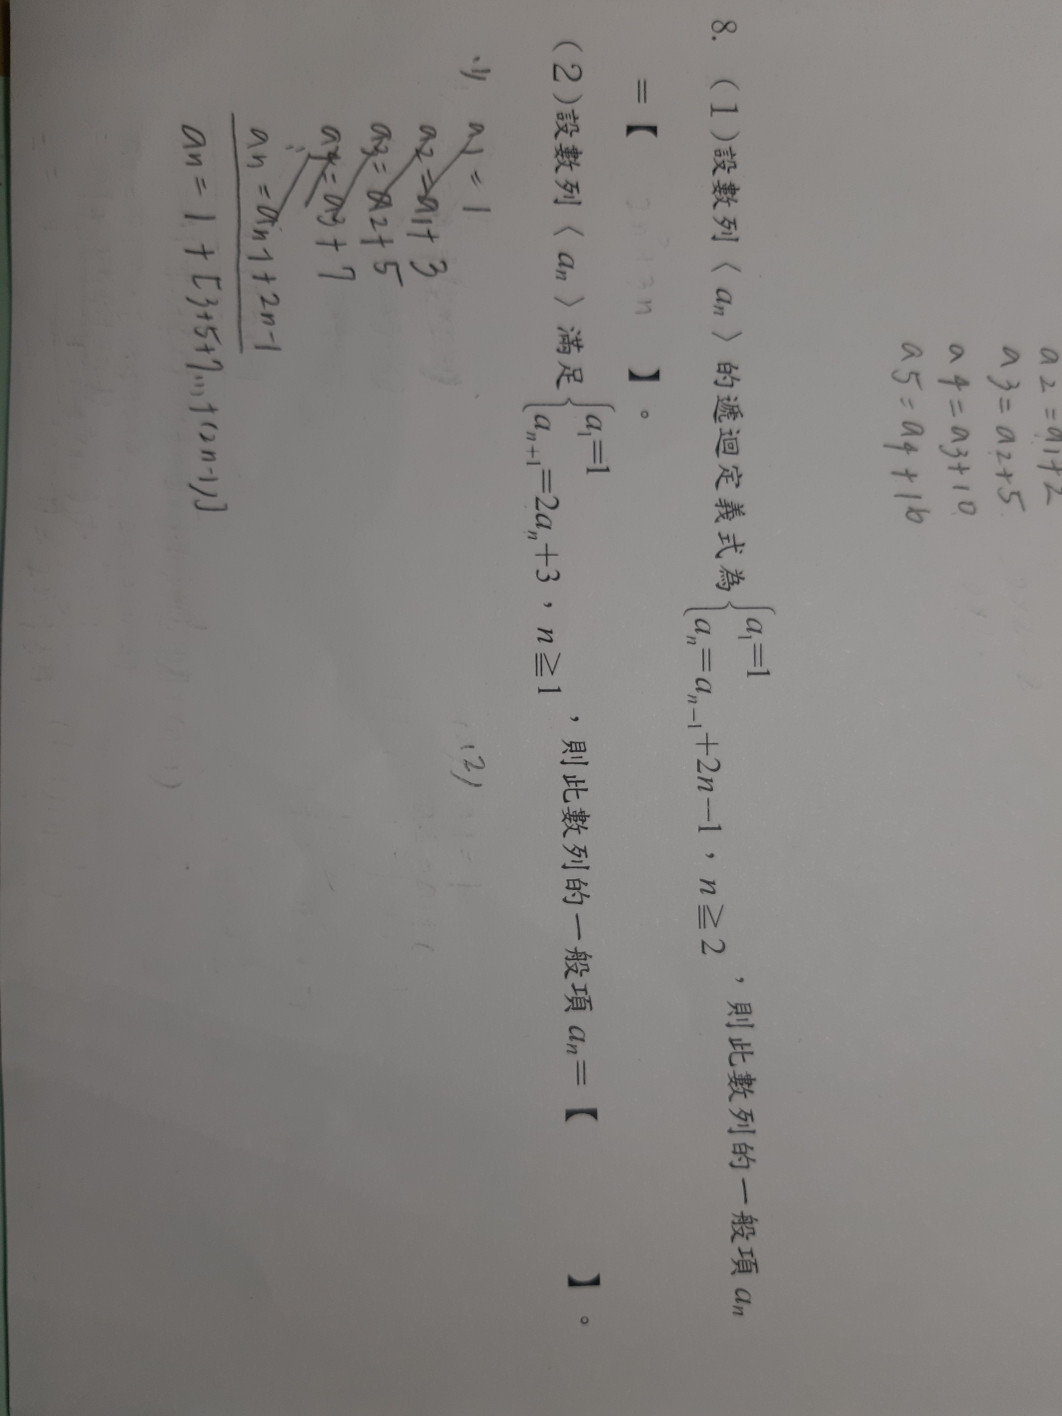 a2 = a1+2
a3 = a2+5
a4 = a3+10
a5 = a4+16
8. (1)設數列〈an〉的遞迴定義式為{a1=1
an=an-1+2n-1,n≧2,則此數列的一般項 an
=【 】。
(2)設數列〈an〉滿足{a1=1
an+1=2an+3,n≧1,則此數列的一般項 an=【 】。
(1) a1 = 1
a2 = a1+3
a3 = a2+5
a4 = a3+7
an = an-1+2n-1
an = 1 + [3+5+7...+(2n-1)]
(2)